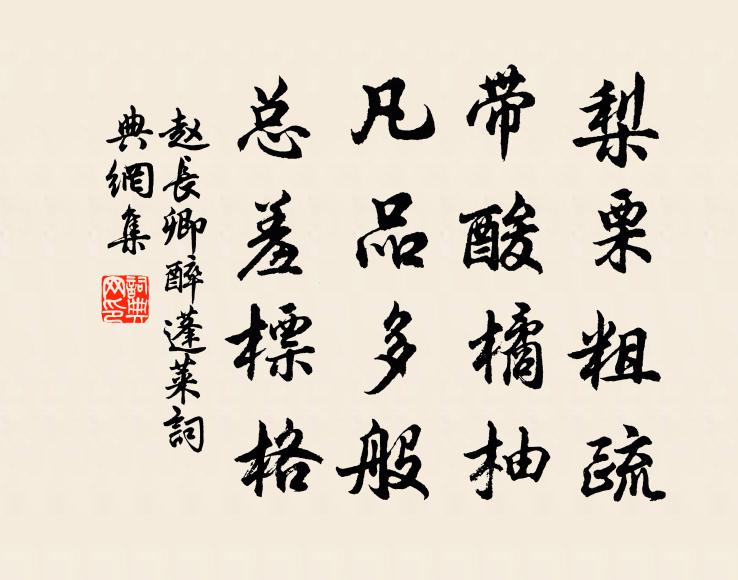 梨栗粗疏
带酸橘柚
凡品多般
总羞標格
赵長卿醉蓬萊詞
典網集
詞典
网印